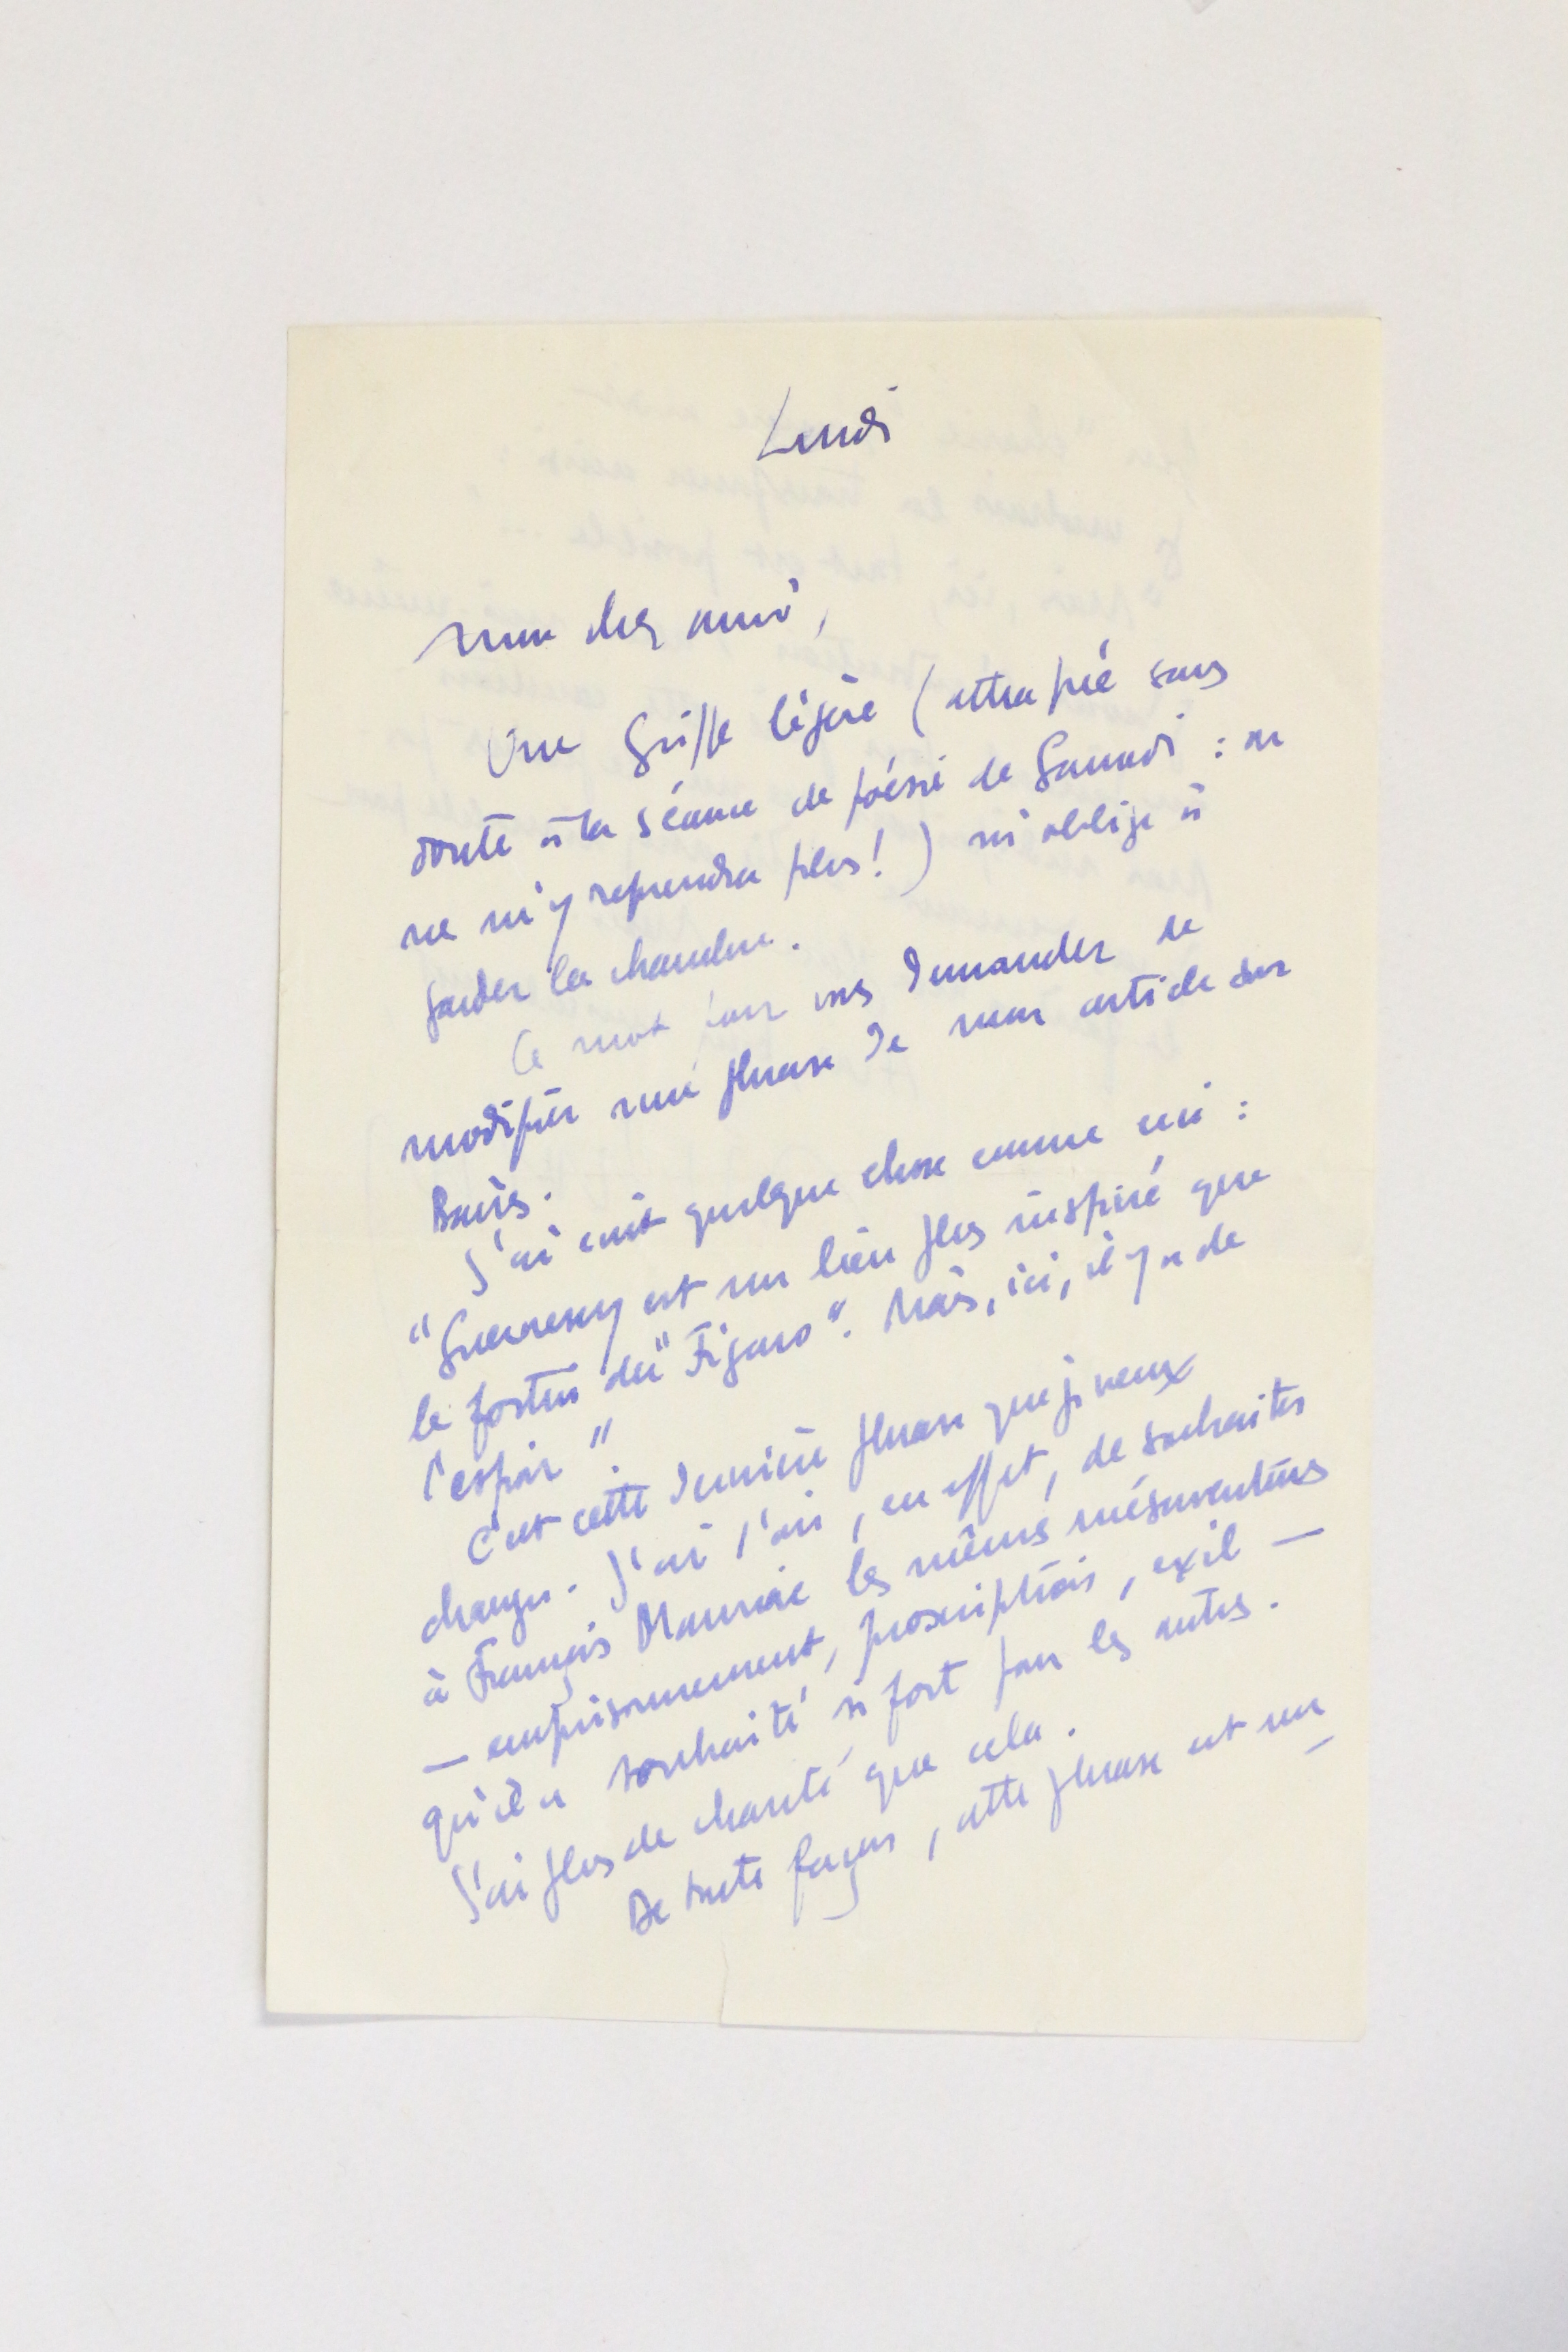 Lundi
Mon cher ami,
Une grippe légère (attrapée sans
doute à la séance de poésie de samedi : on
ne m'y reprendra plus !) m'oblige à
garder la chambre.
Ce mot pour vous demander de
modifier une phrase de mon article sur
J'ai écrit quelque chose comme ceci :
"Guernesey est un lieu plus inspiré que
le fortin du "Figaro". Mais, ici, il y a de
l'espoir".
C'est cette dernière phrase que je veux
changer. J'ai l'air, en effet, de souhaiter
à François Mauriac les mêmes mésaventures
— emprisonnement, proscription, exil —
qu'il a souhaité si fort pour les autres.
J'ai plus de charité que cela.
De toute façon, cette phrase est un